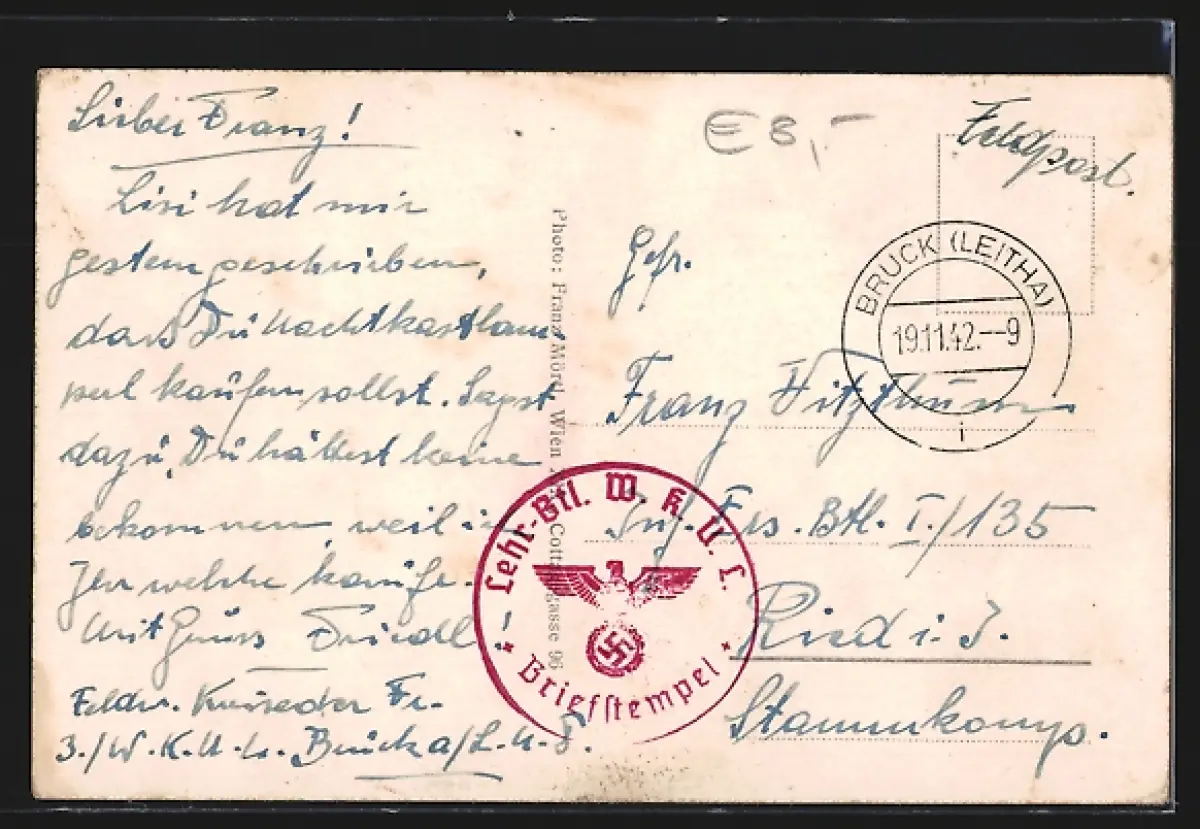 Lieber Franz!
Lisi hat mir
gestern geschrieben,
dass Du Nachtkastlam-
perl kaufen sollst. Sagst
dazu, Du hättest keine
bekommen, weil ich
Ihr welche kaufe.
Mit Gruss Friedl!
Feldw. Fr.
3./W.K.U.L. Bruck a/L.
Photo: Franz Mörtl, Wien Cottagegasse 96
€ 8,-
Feldpost.
BRUCK (LEITHA)
19.11.42.--9
i
Gefr.
Franz Fitzthum
Inf. Ers. Btl. I./135
Ried i. I.
Stammkomp.
Lehr-Btl. W. K. U. L.
Briefstempel